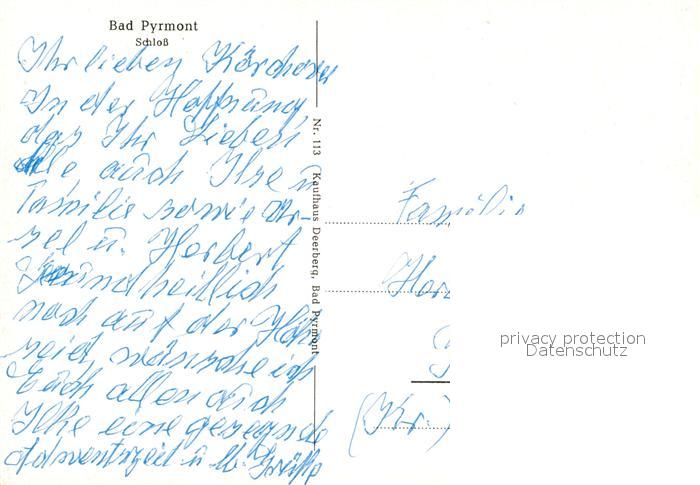 Bad Pyrmont
Schloß
Ihr lieben
In der Hoffnung
das Ihr Lieben
Alle auch Ilse u
Familie sowie Ur-
sel u. Herbert
Gesundheitlich
noch auf der Höhe
seid wünsche ich
Euch allen auch
Ilke eine gesegnete
Adventszeit u. lb. Grüße
Nr. 113 Kaufhaus Deerberg, Bad Pyrmont
Familie
privacy protection
Datenschutz
(Kr.)